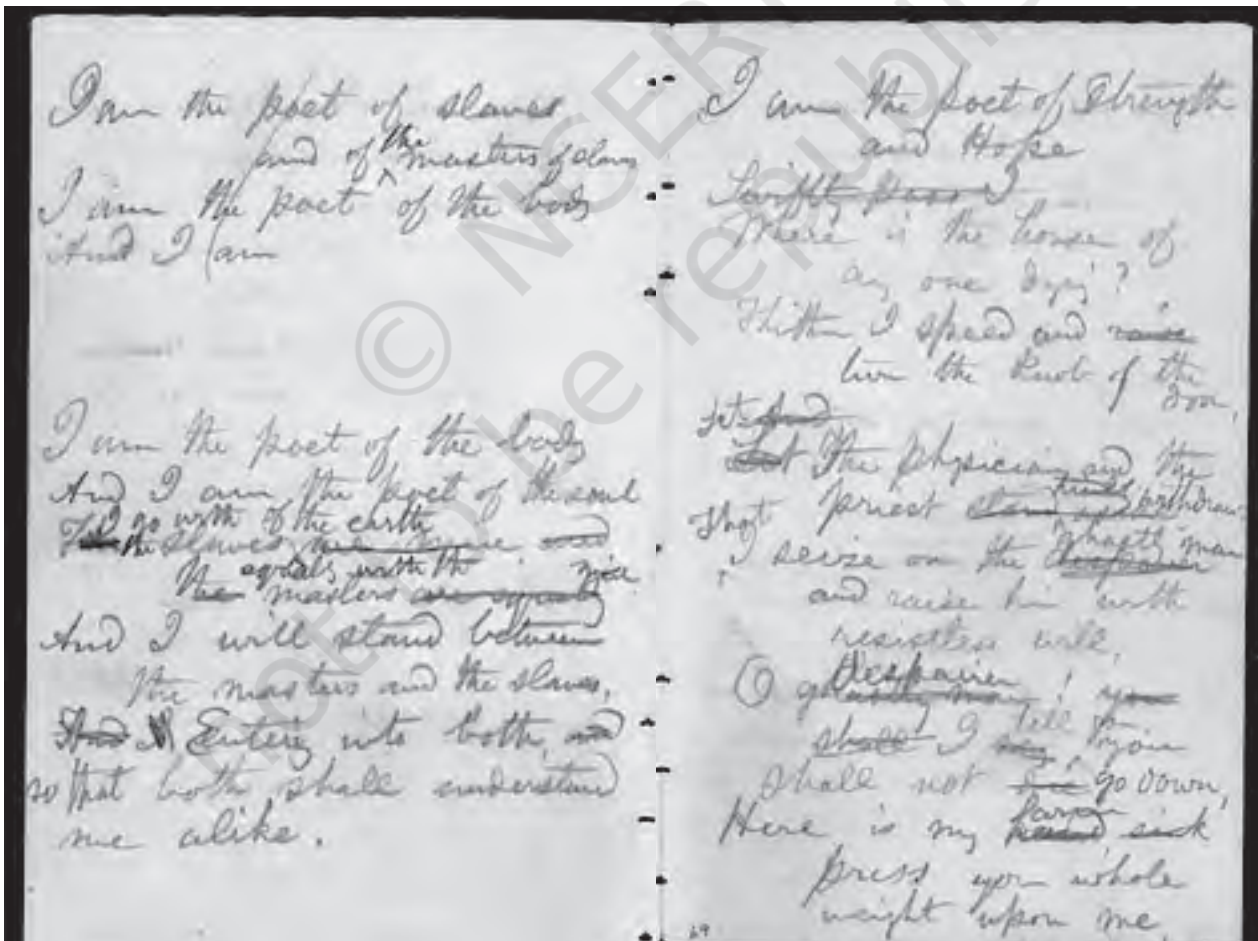 I am the poet of slaves
and of the masters of slaves
I am the poet of the body
And I am
I am the poet of the body
And I am the poet of the soul
I go with the slaves of the earth are mine and
The equals with the masters are equally mine
And I will stand between
the masters and the slaves,
And I Entering into both, and
so that both shall understand
me alike.
I am the poet of Strength
and Hope
Swiftly pass I
Where is the house of
any one dying?
Thither I speed and raise
turn the knob of the
door,
Let
Let The physician and the
priest stand withdraw
That I seize on the ghastly man
and raise him with
resistless will,
O despairer! you
shall I tell you
shall not die go down,
Here is my hand, sink
press your whole
weight upon me,
69
© NCERT
not to be republished